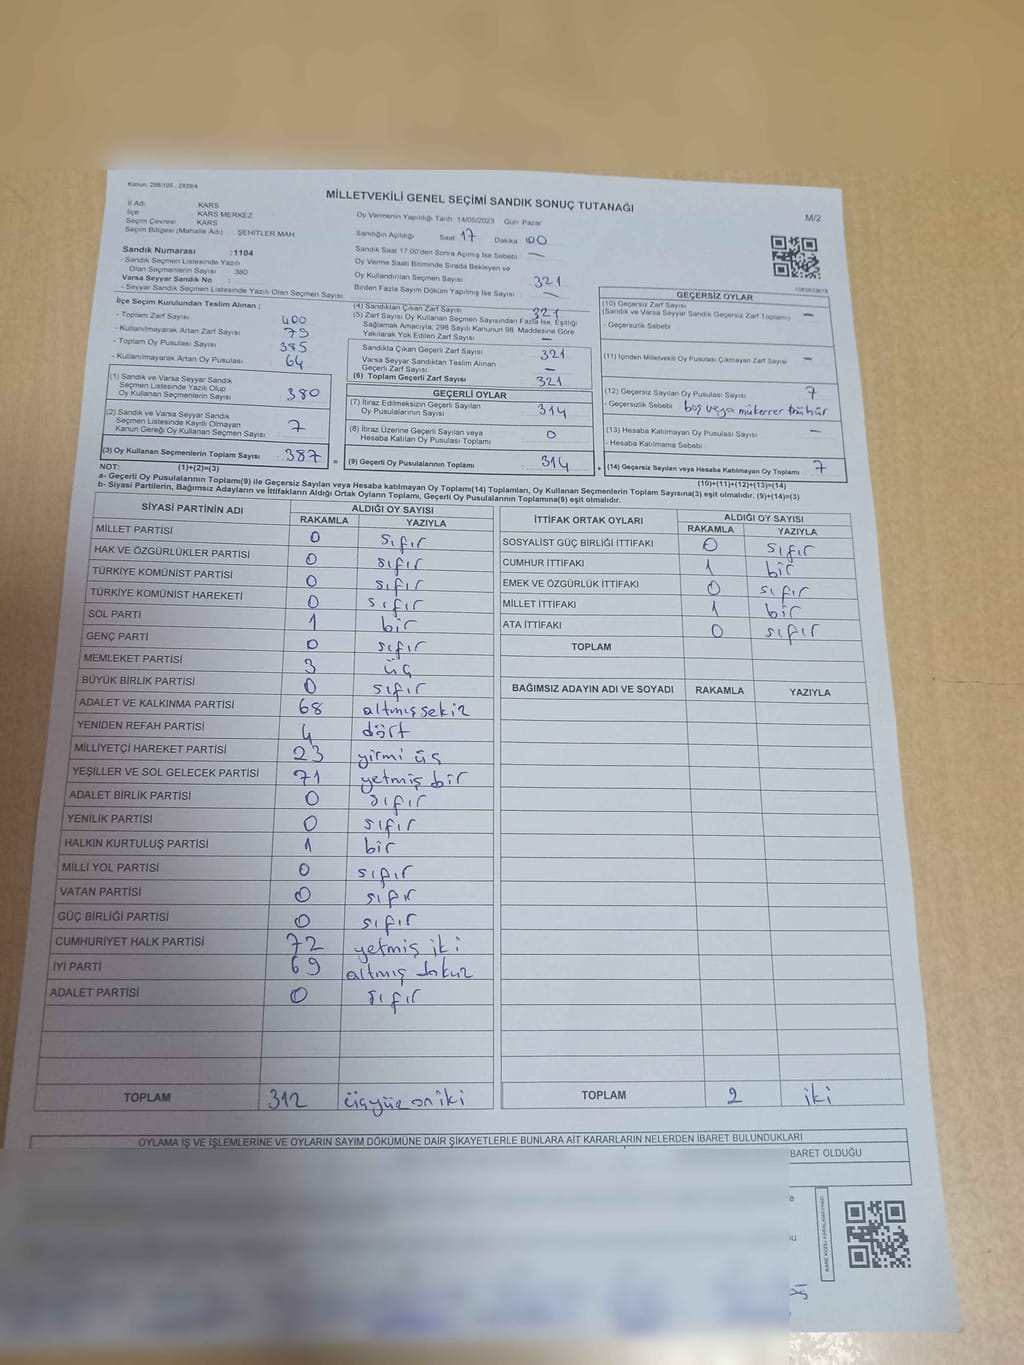 Kanun: 298/105 , 2939/4
MİLLETVEKİLİ GENEL SEÇİMİ SANDIK SONUÇ TUTANAĞI
M/2
İl Adı KARS
İlçe KARS MERKEZ
Seçim Çevresi KARS
Seçim Bölgesi (Mahalle Adı) : ŞEHİTLER MAH
Sandık Numarası :1104
- Sandık Seçmen Listesinde Yazılı
Olan Seçmenlerin Sayısı : 380
Varsa Seyyar Sandık No :
- Seyyar Sandık Seçmen Listesinde Yazılı Olan Seçmen Sayısı
Oy Vermenin Yapıldığı Tarih :14/05/2023 Gün: Pazar
Sandığın Açıldığı Saat 17 Dakika 00
Sandık Saat 17:00'den Sonra Açılmış İse Sebebi —
Oy Verme Saati Bitiminde Sırada Bekleyen ve
Oy Kullandırılan Seçmen Sayısı 321
Birden Fazla Sayım Döküm Yapılmış İse Sayısı —
İlçe Seçim Kurulundan Teslim Alınan ;
- Toplam Zarf Sayısı 400
- Kullanılmayarak Artan Zarf Sayısı 79
- Toplam Oy Pusulası Sayısı 385
- Kullanılmayarak Artan Oy Pusulası 64
(1) Sandık ve Varsa Seyyar Sandık
Seçmen Listesinde Yazılı Olup
Oy Kullanan Seçmenlerin Sayısı 380
(2) Sandık ve Varsa Seyyar Sandık
Seçmen Listesinde Kayıtlı Olmayan
Kanun Gereği Oy Kullanan Seçmen Sayısı 7
(3) Oy Kullanan Seçmenlerin Toplam Sayısı 387
(4) Sandıktan Çıkan Zarf Sayısı 321
(5) Zarf Sayısı Oy Kullanan Seçmen Sayısından Fazla İse, Eşitliği
Sağlamak Amacıyla; 298 Sayılı Kanunun 98. Maddesine Göre
Yakılarak Yok Edilen Zarf Sayısı —
Sandıkta Çıkan Geçerli Zarf Sayısı 321
Varsa Seyyar Sandıktan Teslim Alınan
Geçerli Zarf Sayısı —
(6) Toplam Geçerli Zarf Sayısı 321
GEÇERLİ OYLAR
(7) İtiraz Edilmeksizin Geçerli Sayılan
Oy Pusulalarının Sayısı 314
(8) İtiraz Üzerine Geçerli Sayılan veya
Hesaba Katılan Oy Pusulası Toplamı 0
= (9) Geçerli Oy Pusulalarının Toplamı 314
GEÇERSİZ OYLAR
(10) Geçersiz Zarf Sayısı
(Sandık ve Varsa Seyyar Sandık Geçersiz Zarf Toplamı) —
- Geçersizlik Sebebi
(11) İçinden Milletvekili Oy Pusulası Çıkmayan Zarf Sayısı —
(12) Geçersiz Sayılan Oy Pusulası Sayısı 7
- Geçersizlik Sebebi boş veya mükerrer mühür
(13) Hesaba Katılmayan Oy Pusulası Sayısı —
- Hesaba Katılmama Sebebi
+ (14) Geçersiz Sayılan veya Hesaba Katılmayan Oy Toplamı 7
NOT: (1)+(2)=(3) (10)+(11)+(12)+(13)=(14)
a- Geçerli Oy Pusulalarının Toplamı(9) ile Geçersiz Sayılan veya Hesaba katılmayan Oy Toplamı(14) Toplamları, Oy Kullanan Seçmenlerin Toplam Sayısına(3) eşit olmalıdır. (9)+(14)=(3)
b- Siyasi Partilerin, Bağımsız Adayların ve İttifakların Aldığı Ortak Oyların Toplamı, Geçerli Oy Pusulalarının Toplamına(9) eşit olmalıdır.
SİYASİ PARTİNİN ADI ALDIĞI OY SAYISI
RAKAMLA YAZIYLA
MİLLET PARTİSİ 0 sıfır
HAK VE ÖZGÜRLÜKLER PARTİSİ 0 sıfır
TÜRKİYE KOMÜNİST PARTİSİ 0 sıfır
TÜRKİYE KOMÜNİST HAREKETİ 0 sıfır
SOL PARTİ 1 bir
GENÇ PARTİ 0 sıfır
MEMLEKET PARTİSİ 3 üç
BÜYÜK BİRLİK PARTİSİ 0 sıfır
ADALET VE KALKINMA PARTİSİ 68 altmışsekiz
YENİDEN REFAH PARTİSİ 4 dört
MİLLİYETÇİ HAREKET PARTİSİ 23 yirmi üç
YEŞİLLER VE SOL GELECEK PARTİSİ 71 yetmiş bir
ADALET BİRLİK PARTİSİ 0 sıfır
YENİLİK PARTİSİ 0 sıfır
HALKIN KURTULUŞ PARTİSİ 1 bir
MİLLİ YOL PARTİSİ 0 sıfır
VATAN PARTİSİ 0 sıfır
GÜÇ BİRLİĞİ PARTİSİ 0 sıfır
CUMHURİYET HALK PARTİSİ 72 yetmiş iki
İYİ PARTİ 69 altmış dokuz
ADALET PARTİSİ 0 sıfır
TOPLAM 312 üçyüz on iki
İTTİFAK ORTAK OYLARI ALDIĞI OY SAYISI
RAKAMLA YAZIYLA
SOSYALİST GÜÇ BİRLİĞİ İTTİFAKI 0 sıfır
CUMHUR İTTİFAKI 1 bir
EMEK VE ÖZGÜRLÜK İTTİFAKI 0 sıfır
MİLLET İTTİFAKI 1 bir
ATA İTTİFAKI 0 sıfır
TOPLAM
BAĞIMSIZ ADAYIN ADI VE SOYADI RAKAMLA YAZIYLA
TOPLAM 2 iki
OYLAMA İŞ VE İŞLEMLERİNE VE OYLARIN SAYIM DÖKÜMÜNE DAİR ŞİKAYETLERLE BUNLARA AİT KARARLARIN NELERDEN İBARET BULUNDUKLARI
BARET OLDUĞU
KARE KODU KARALAMAYINIZ!